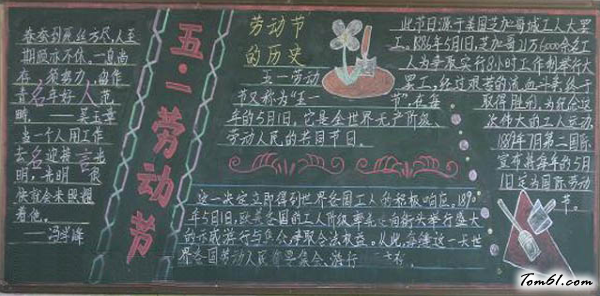 五·一劳动节
春蚕到死丝方尽,人至
期颐亦不休,一息尚
存,须努力,留作
青年好人范
畴。——吴玉章
当一个人用工作
去迎接光
明,光明很
快就会来照耀
着他。
——冯学峰
劳动节
的历史
五一劳动
节又称为"五一 节",在每
年的5月1日,它是全世界无产阶级、
劳动人民的共同节日。
此节日源于美国芝加哥城工人大罢
工,1886年5月1日,芝加哥21万6000余名工
人为争取实行8小时工作制举行大
罢工,经过艰苦的流血斗争,终于
取得胜利。为纪念这
次伟大的工人运动
1889年7月第二国际
宣布将每年的5月
1日定为国际劳动
节。
这一决定立即得到世界各国工人的积极响应。1890
年5月1日,欧美各国的工人阶级率先走向街头举行盛大
的示威游行与集会,争取合法权益。从此,每逢这一天世
界各国劳动人民都要集会、游行
Tom61.com